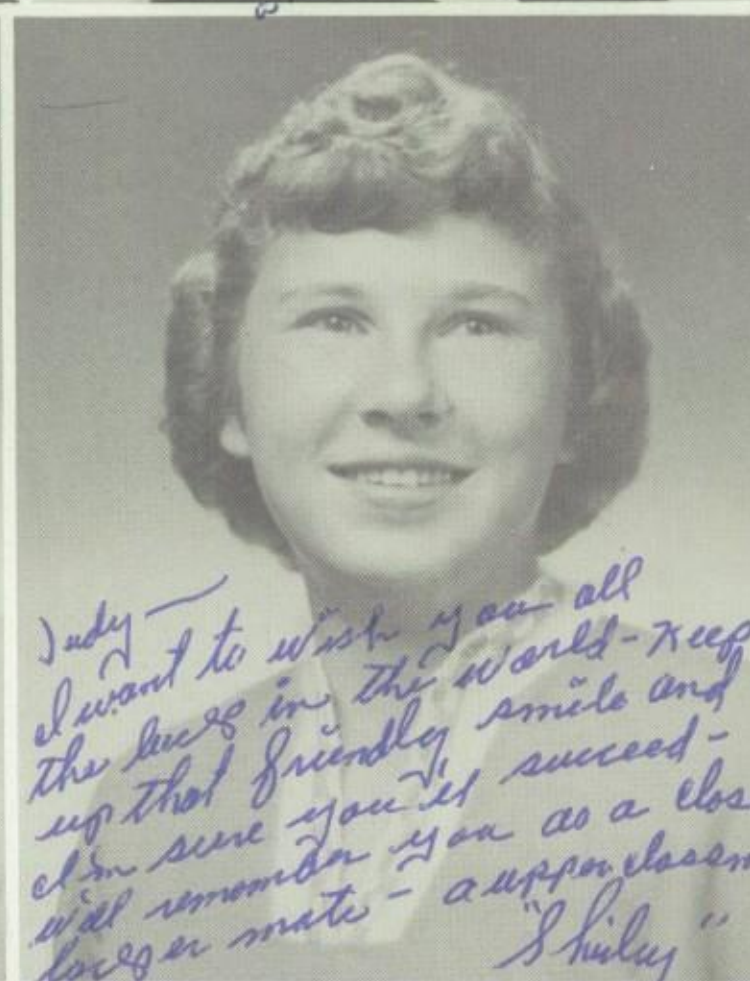 Judy —
I want to wish you all
the luck in the world - Keep
up that friendly smile and
I'm sure you'll succeed -
will remember you as a clos
locker mate - a upper classm
"Shirley"